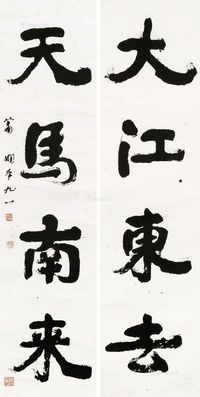 大江東去
天馬南来
萧娴年九一